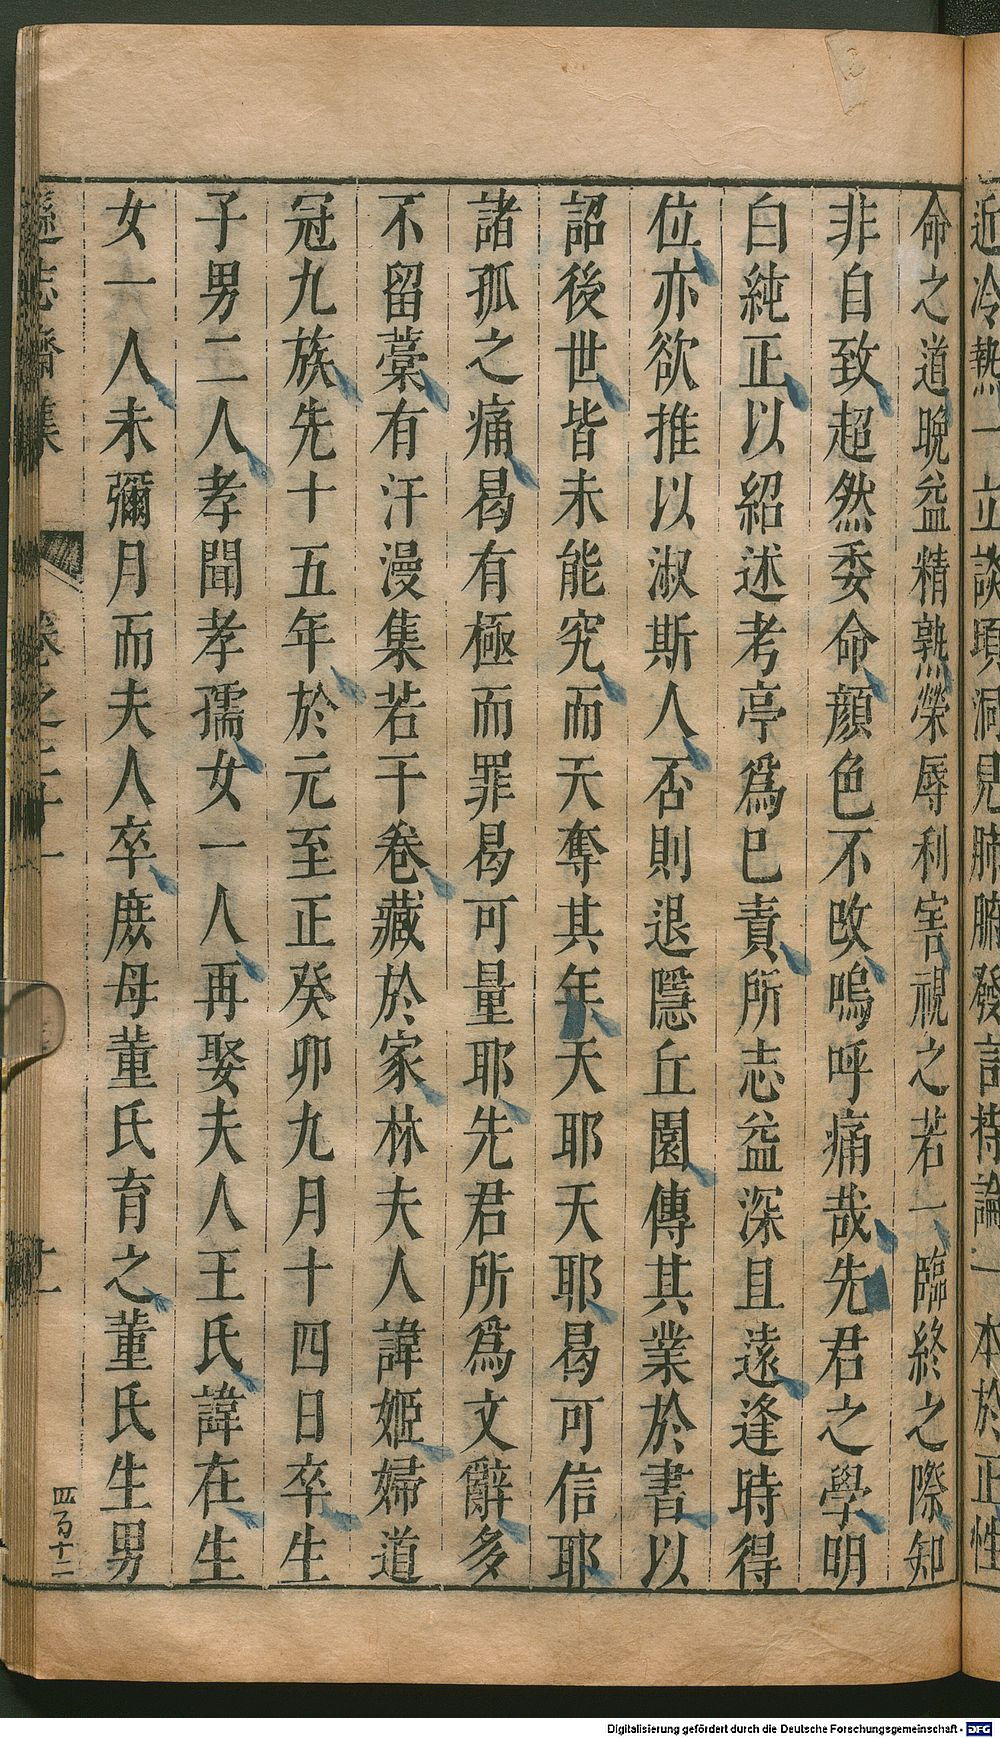 近冷熱一立談頃洞見肺腑發言持論一本於正性
命之道晚益精熟榮辱利害視之若一臨終之際知
非自致超然委命顔色不改嗚呼痛哉先君之學明
白純正以紹述考亭爲已責所志益深且遠逢時得
位亦欲推以淑斯人否則退隱丘園傳其業於書以
詔後世皆未能究而天奪其年天耶天耶曷可信耶
諸孤之痛曷有極而罪曷可量耶先君所爲文辭多
不留藁有汗漫集若干卷藏於家林夫人諱姬婦道
冠九族先十五年於元至正癸卯九月十四日卒生
子男二人孝聞孝孺女一人再娶夫人王氏諱在生
女一人未彌月而夫人卒庶母董氏育之董氏生男
遜志齋集 卷之二十一 廿一
四百十二
Digitalisierung gefördert durch die Deutsche Forschungsgemeinschaft - DFG